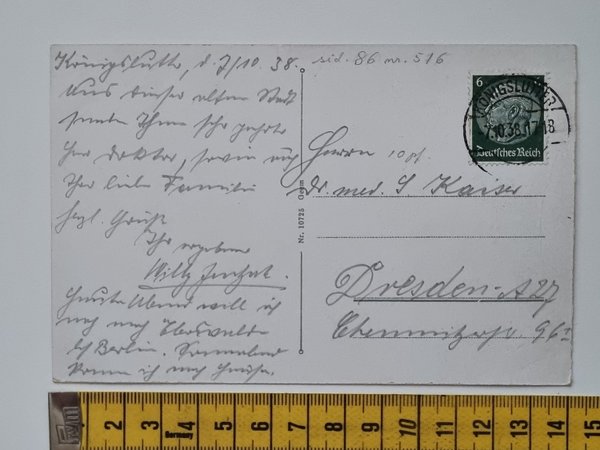 Königslutter, d. 7/10. 38.
Aus dieser alten Stadt
senden Ihnen sehr geehrter
Herr Doktor, sowie auch
Ihrer lieben Familie
herzl. Grüße
Ihr ergebener
Willy
Heute Abend will ich
noch nach Eberswalde
b/ Berlin. Sonnabend
komme ich nach Hause.
sid. 86 nr. 516
6
KÖNIGSLUTTER
7.10.38.17-18
Deutsches Reich
Herrn
Dr. med. S. Kaiser
Dresden-A27
Chemnitzerstr. 96 I
Nr. 10725 Gesm
2 3 4 5 6 7 8 9 10 11 12 13 14 15
Germany